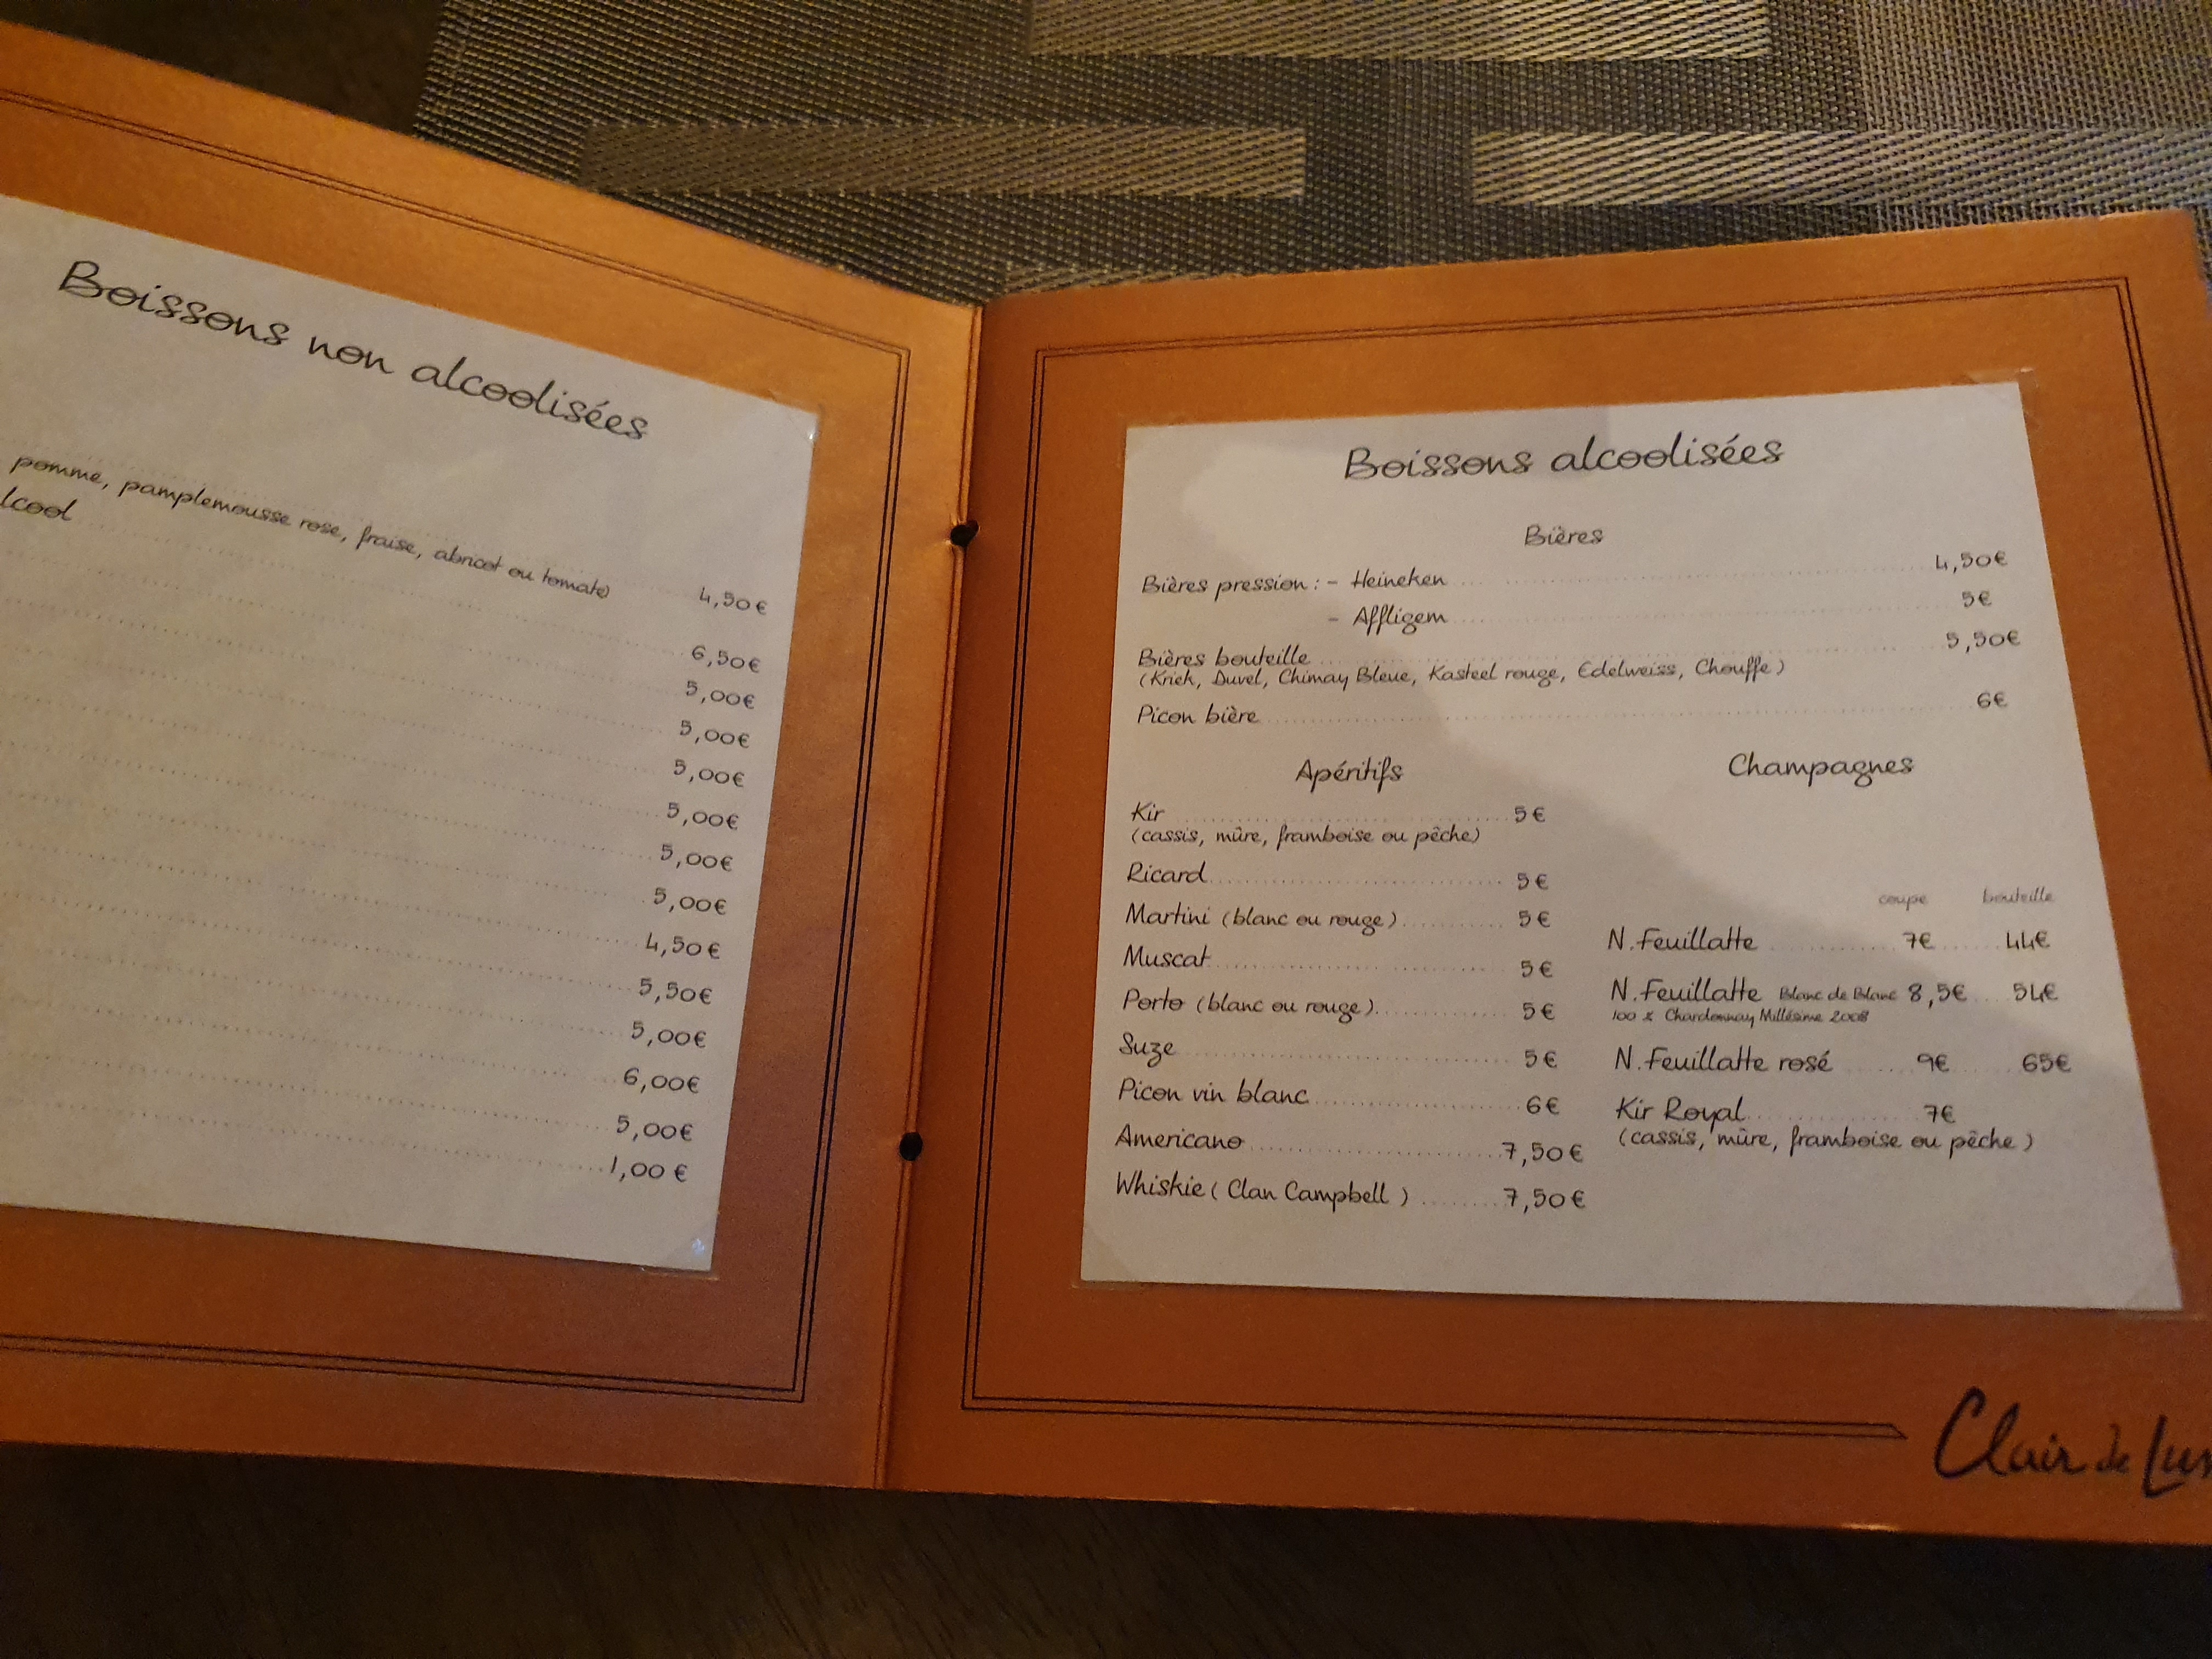 Boissons non alcoolisées
pomme, pamplemousse rose, fraise, abricot ou tomate)
4,50€
lcool
6,50€
5,00€
5,00€
5,00€
5,00€
5,00€
5,00€
4,50€
5,50€
5,00€
6,00€
5,00€
1,00 €
Boissons alcoolisées
Bières
Bières pression : - Heineken 4,50€
- Affligem 5€
Bières bouteille 5,50€
(Kriek, Duvel, Chimay Bleue, Kasteel rouge, Edelweiss, Chouffe)
Picon bière 6€
Apéritifs
Kir 5€
(cassis, mûre, framboise ou pêche)
Ricard 5€
Martini (blanc ou rouge) 5€
Muscat 5€
Porto (blanc ou rouge) 5€
Suze 5€
Picon vin blanc 6€
Americano 7,50€
Whiskie ( Clan Campbell ) 7,50€
Champagnes
coupe bouteille
N.Feuillatte 7€ 44€
N.Feuillatte Blanc de Blanc 8,5€ 54€
100 % Chardonnay Millésime 2008
N.Feuillatte rosé 9€ 65€
Kir Royal 7€
(cassis, mûre, framboise ou pêche )
Clair de Lun